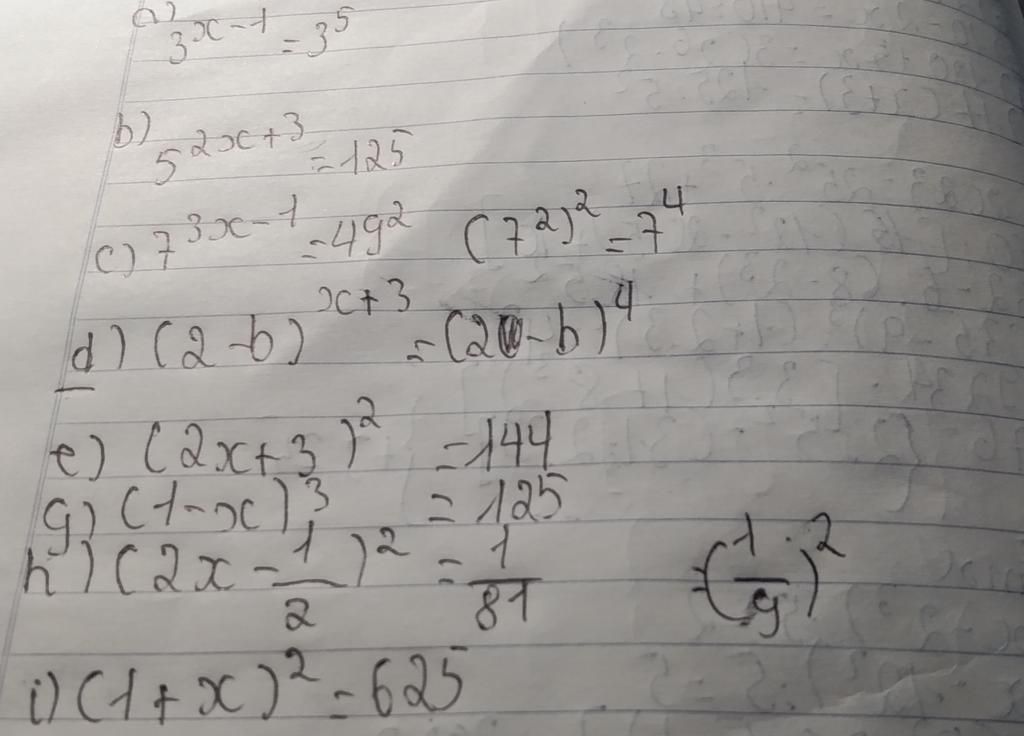 a)
3^{x-1} = 3^5
b) 5^{2x+3} = 125
c) 7^{3x-1} = 49^2 (7^2)^2 = 7^4
d) (2-b)^{x+3} = (2-b)^4
e) (2x+3)^2 = 144
g) (1-x)^3 = 125
h) (2x - \frac{1}{2})^2 = \frac{1}{81} = (\frac{1}{9})^2
i) (1+x)^2 = 625